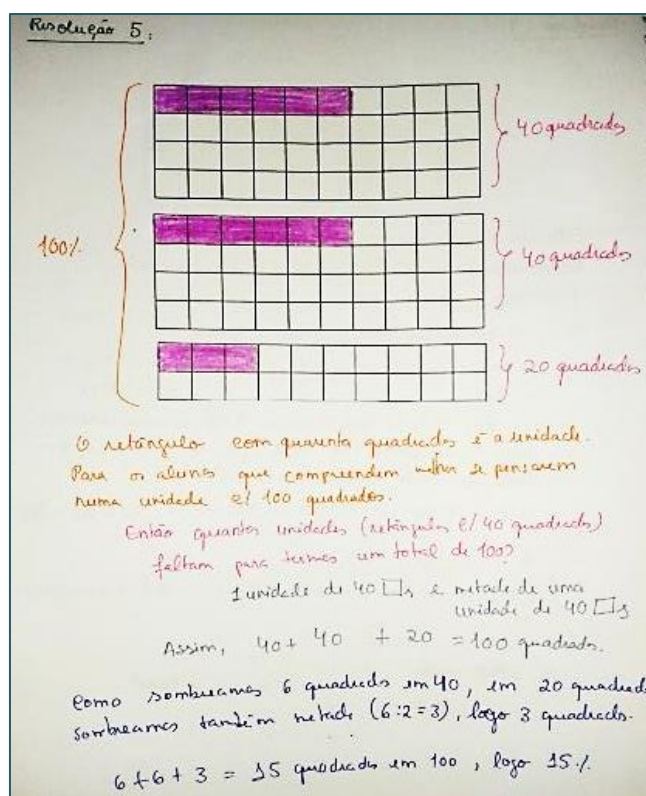 Resolução 5:
40 quadrados
100%
40 quadrados
20 quadrados
O retângulo com quarenta quadrados é a unidade.
Para os alunos que compreendem melhor se pensarem
numa unidade c/ 100 quadrados.
Então quantas unidades (retângulos c/ 40 quadrados)
faltam para termos um total de 100?
1 unidade de 40 □s e metade de uma
unidade de 40 □s
Assim, 40 + 40 + 20 = 100 quadrados.
Como sombreamos 6 quadrados em 40, em 20 quadrad
sombreamos também metade (6:2=3), logo 3 quadrados.
6 + 6 + 3 = 15 quadrados em 100, logo 15%